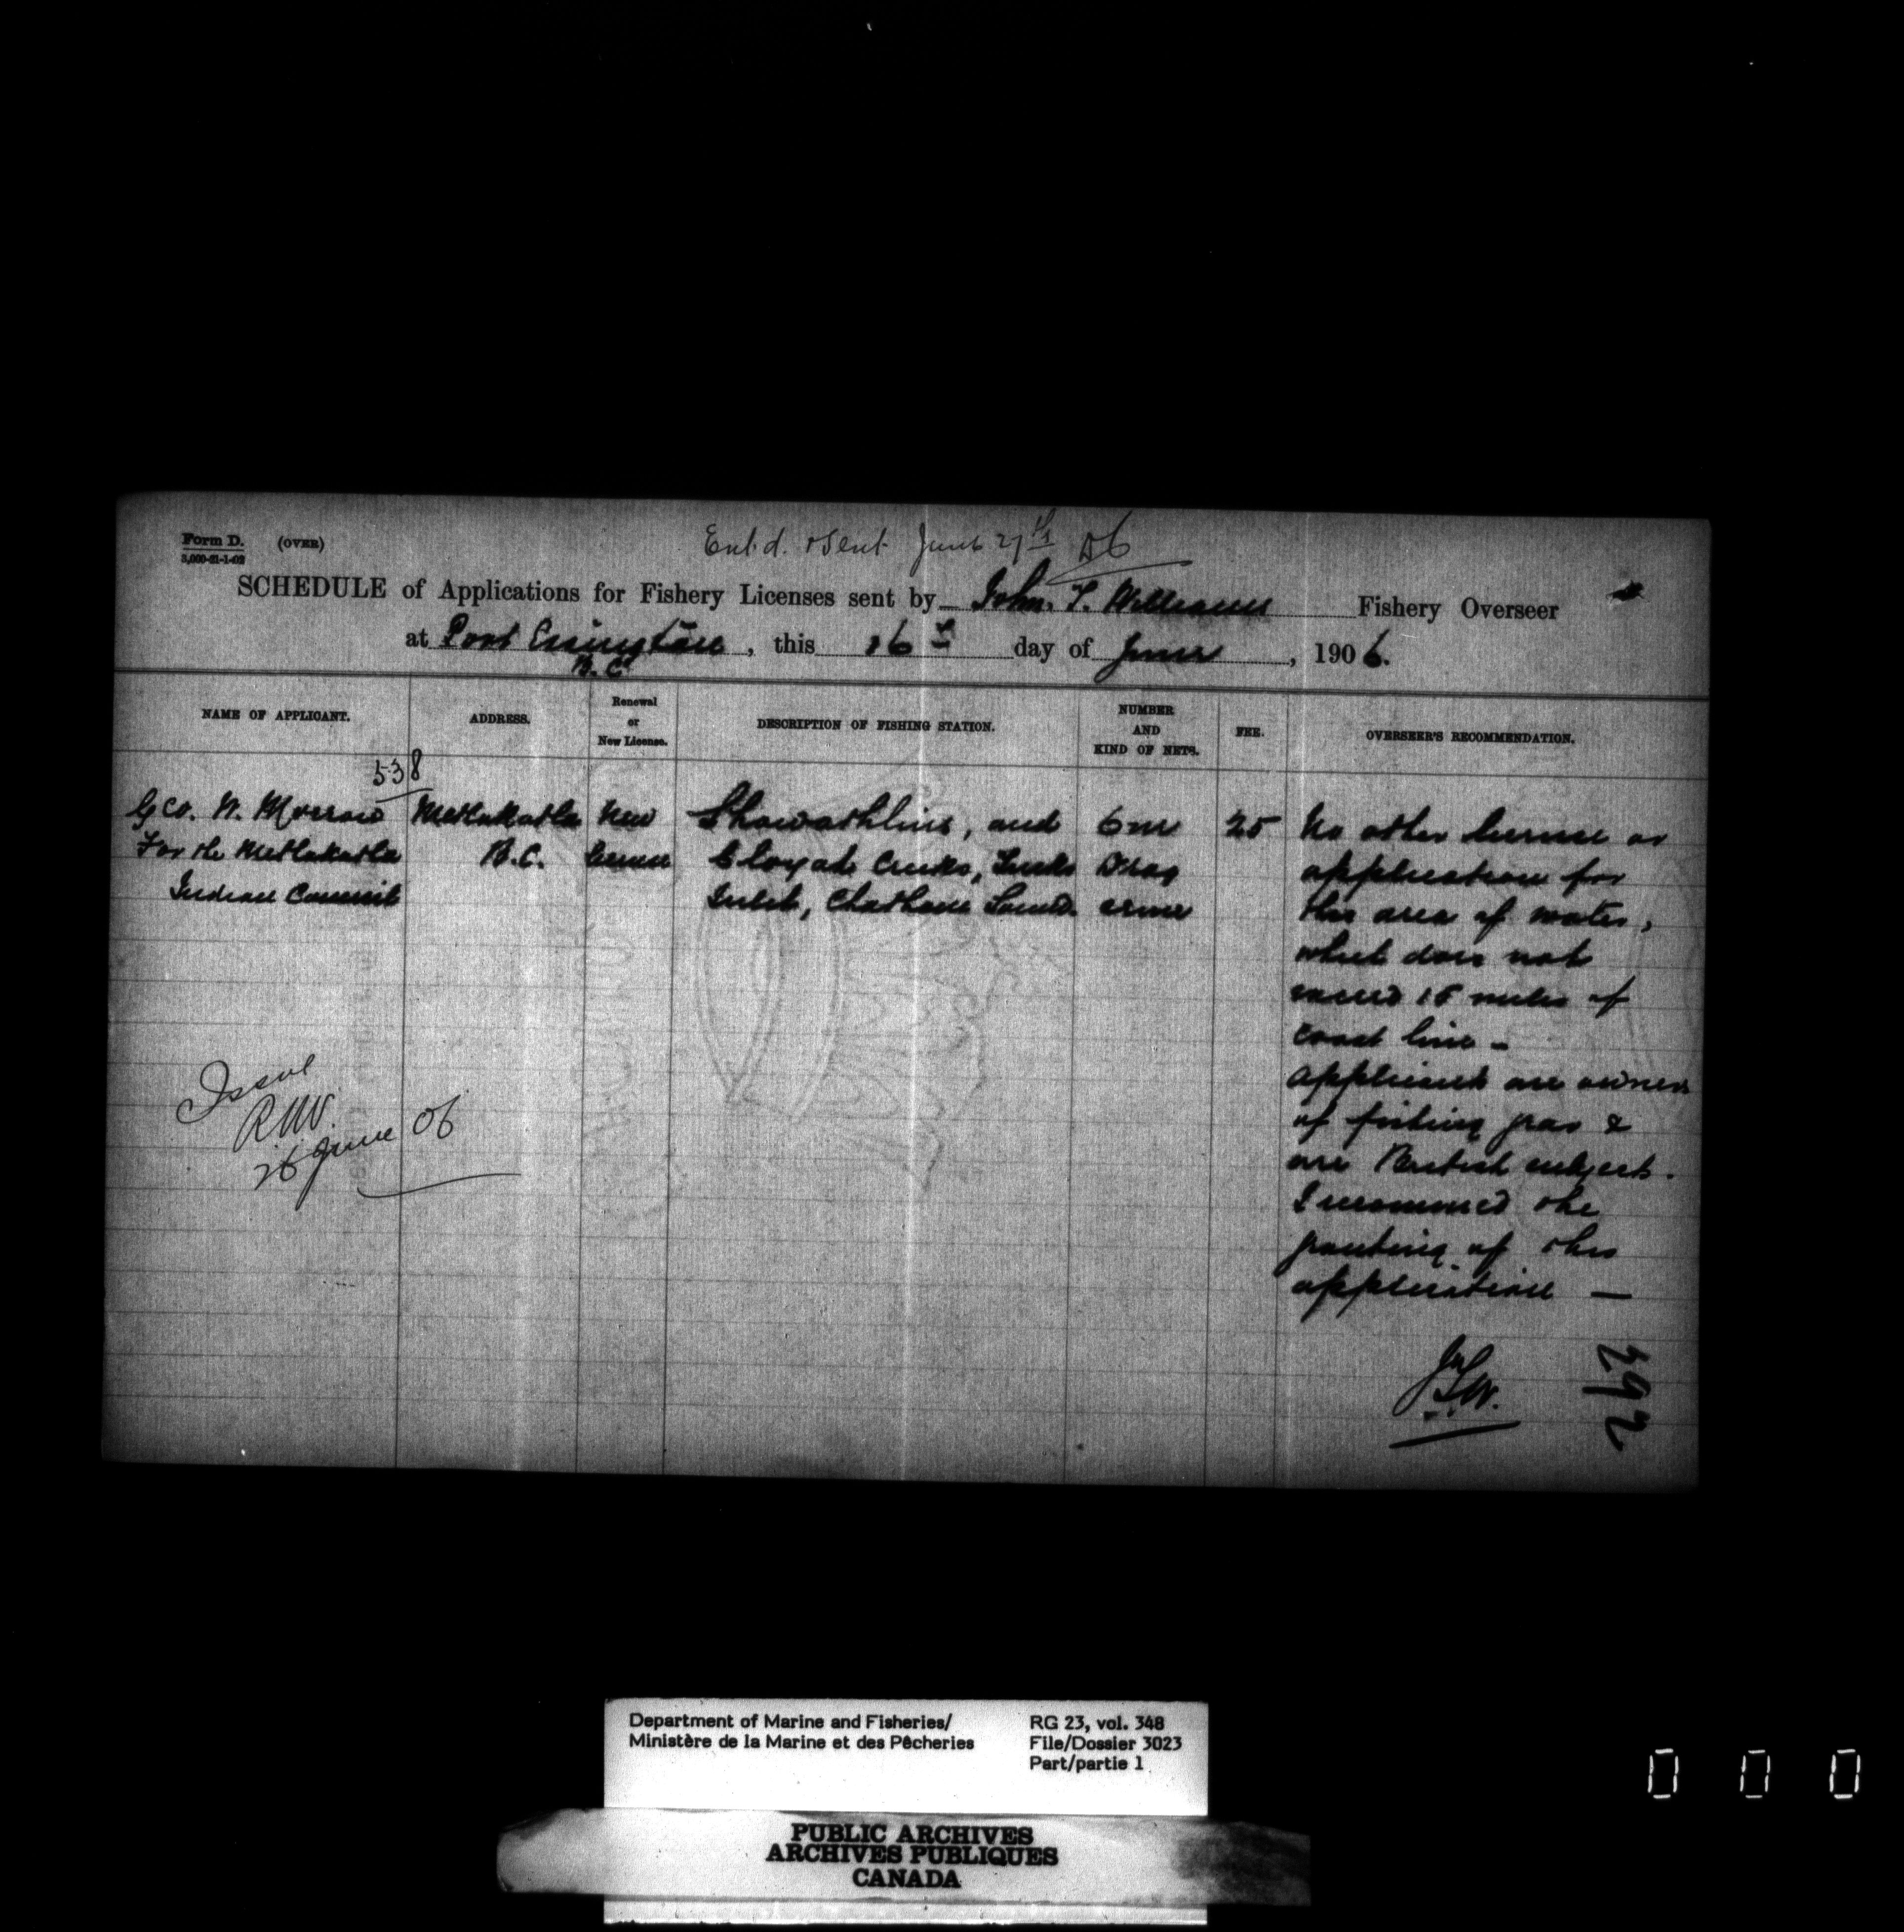 Form D. (OVER)
3,000-21-1-02
Ent'd. & Sent June 27th 06
SCHEDULE of Applications for Fishery Licenses sent by John. T. Williams Fishery Overseer
at Port Essington, this 16th day of June, 1906.
B.C.
NAME OF APPLICANT. ADDRESS. Renewal or New License. DESCRIPTION OF FISHING STATION. NUMBER AND KIND OF NETS. FEE. OVERSEER'S RECOMMENDATION.
538
Geo. W. Morrow Metlakatla New Shawathlins, and One 25 No other license or
For the Metlakatla B.C. License Cloyah Creeks, Tucks Drag application for
Indian Council Inlet, Chatham Sound. seine this area of water,
which does not
exceed 15 miles of
coast line -
Applicants are owners
of fishing gear &
are British subjects.
I recommend the
granting of this
application —
Issue
R.N.V.
26 June 06
J.T.W.
392
Department of Marine and Fisheries/
Ministère de la Marine et des Pêcheries
RG 23, vol. 348
File/Dossier 3023
Part/partie 1
PUBLIC ARCHIVES
ARCHIVES PUBLIQUES
CANADA
0 0 0